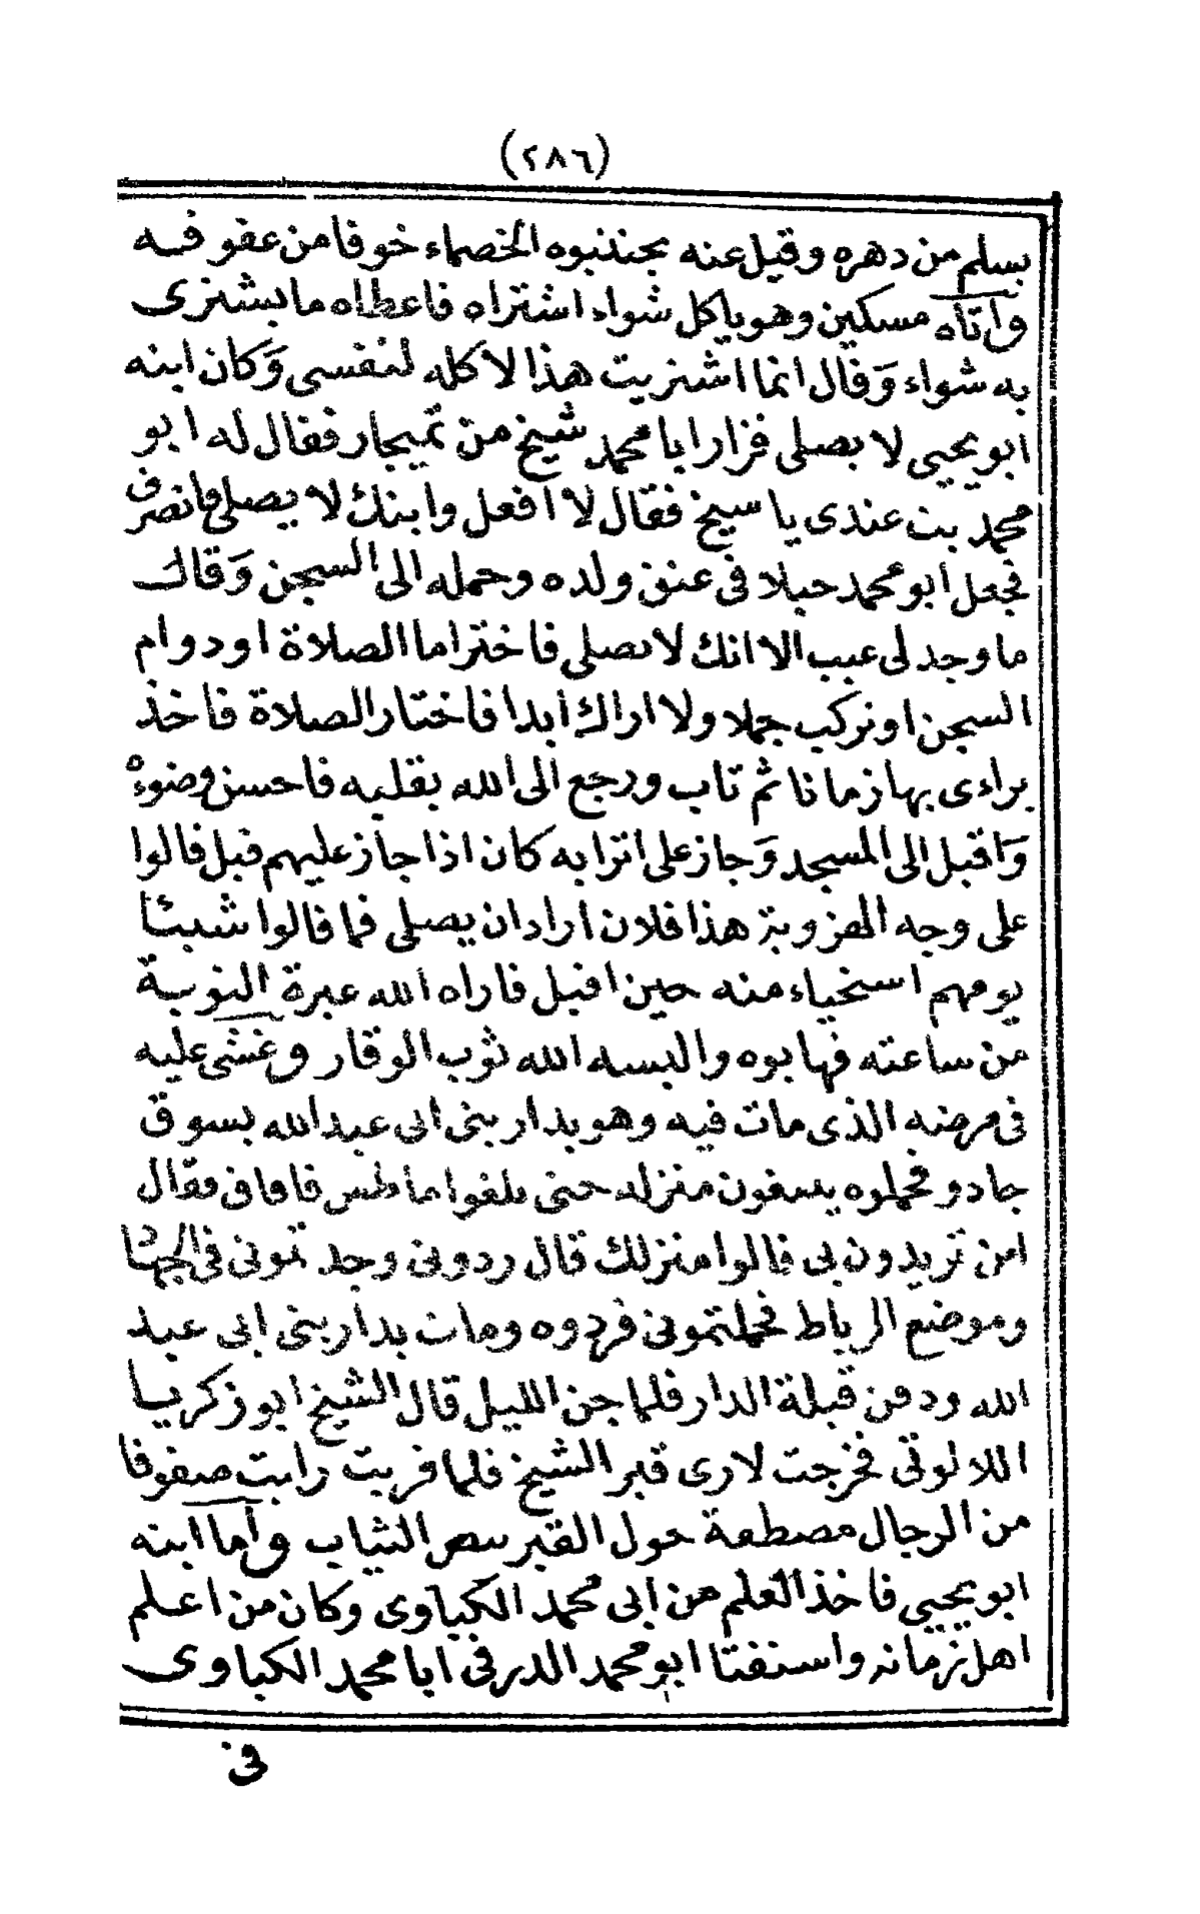 (٢٨٦)
يسلم من دهره وقيل عنه يجتنبوه الخصماء خوفا من عقوقه
وأتاه مسكين وهو ياكل شواء اشتراه فاعطاه ما يشترى
به شواء وقال انما اشتريت هذا لاكله لنفسى وكان ابنه
ابو يحيى لا يصلى فزار ابا محمد شيخ من تميجار فقال له ابو
محمد بت عندى يا شيخ فقال لا افعل وابنك لا يصلى فانصرف
فجعل ابو محمد حبلا فى عنق ولده وحمله الى السجن وقال
ما وجد لى عيب الا انك لا تصلى فاختر اما الصلاة او دوام
السجن او تركب جملا ولا اراك ابدا فاختار الصلاة فاخذ
يراءى بها زمانا ثم تاب ورجع الى الله بقلبه فاحسن وضوءه
واقبل الى المسجد وجاز على اترابه كان اذا جاز عليهم قبل قالوا
على وجه هذا فلان اراد ان يصلى فما قالوا شيئا
يومهم استحياء منه حين اقبل فاراه الله عبرة التوبة
من ساعته فهابوه والبسه الله ثوب الوقار وغشى عليه
فى مرضه الذى مات فيه وهو بدار بنى ابى عبد الله بسوق
جادو فحملوه يريدون منزله حتى بلغوا فافاق فقال
اين تريدون بى قالوا منزلك قال ردونى وجد تمونى فى الجهاد
وموضع الرباط فحملتمونى فردوه ومات بدار بنى ابى عبد
الله ودفن قبلة الدار فلما جن الليل قال الشيخ ابو زكريا
اللالوتى فخرجت لارى قبر الشيخ فلما قربت رايت صفوفا
من الرجال حول القبر الثياب وأما ابنه
ابو يحيى فاخذ العلم من ابى محمد الكباوى وكان من اعلم
اهل زمانه واستفتا ابو محمد الدرفى ابا محمد الكباوى
فى